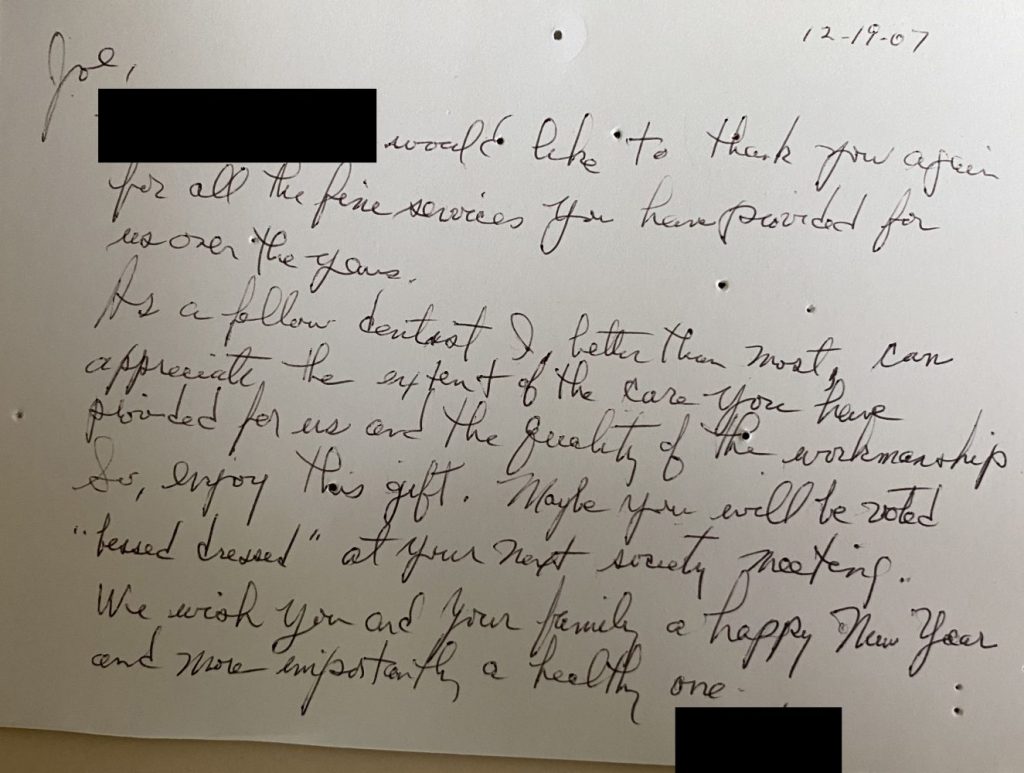 12-19-07
Joe,
would like to thank you again
for all the fine services you have provided for
us over the years.
As a fellow dentist I, better than most, can
appreciate the extent of the care you have
provided for us and the quality of the workmanship
So, enjoy this gift. Maybe you will be voted
"bessed dressed" at your next society meeting.
We wish you and your family a happy New Year
and more importantly a healthy one.